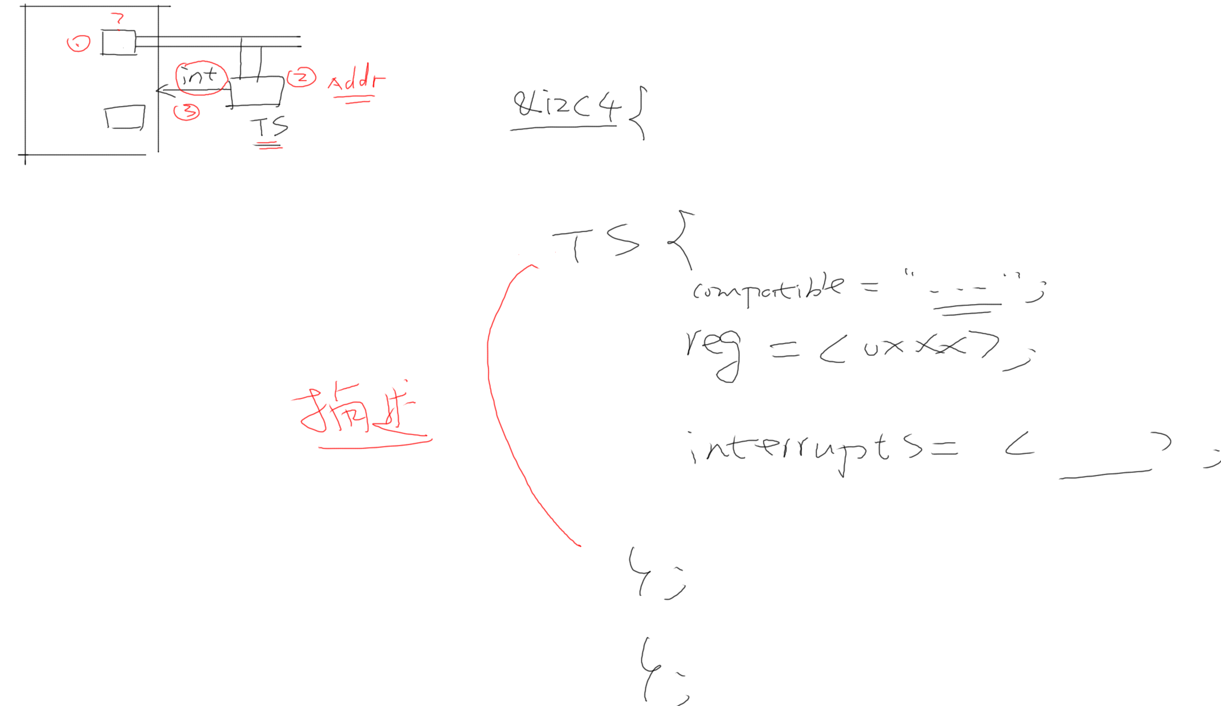 ?
①
int
② Addr
③
TS
&i2C4 {
TS {
compatible = "---";
reg = <0xxx>;
描述
interrupts = < ___ > ;
};
};